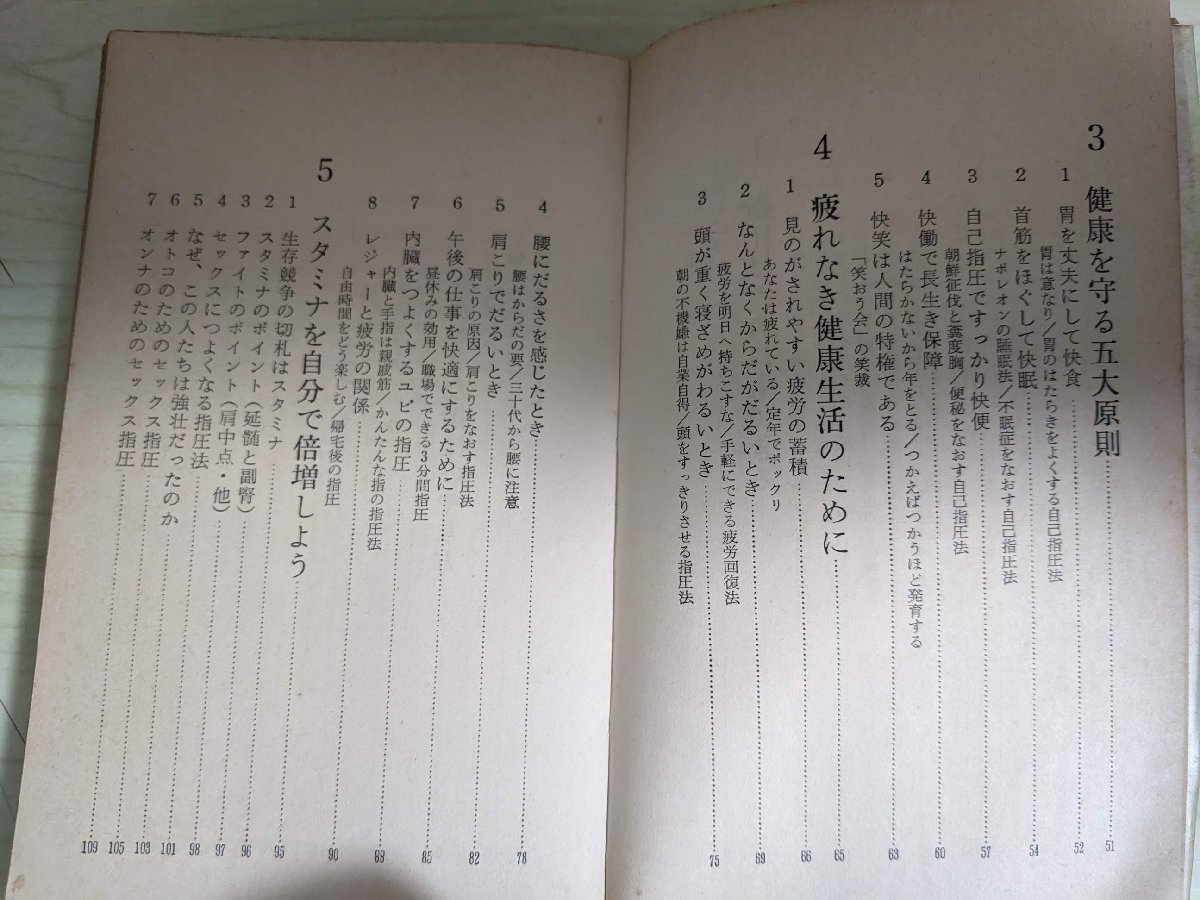 3 健康を守る五大原則……51
1 胃を丈夫にして快食……52
胃は意なり/胃のはたらきをよくする自己指圧法
2 首筋をほぐして快眠……54
ナポレオンの睡眠法/不眠症をなおす自己指圧法
3 自己指圧ですっかり快便……57
朝鮮征伐と糞度胸/便秘をなおす自己指圧法
4 快働で長生き保障……60
はたらかないから年をとる/つかえばつかうほど発育する
5 快笑は人間の特権である……63
「笑おう会」の笑裁
4 疲れなき健康生活のために……65
1 見のがされやすい疲労の蓄積……66
あなたは疲れている/定年でポックリ
2 なんとなくからだがだるいとき……69
疲労を明日へ持ちこすな/手軽にできる疲労回復法
3 頭が重く寝ざめがわるいとき……75
朝の不機嫌は自業自得/頭をすっきりさせる指圧法
4 腰にだるさを感じたとき……78
腰はからだの要/三十代から腰に注意
5 肩こりでだるいとき……82
肩こりの原因/肩こりをなおす指圧法
6 午後の仕事を快適にするために……85
昼休みの効用/職場でできる3分間指圧
7 内臓をつよくするユビの指圧……89
内臓と手指は親戚筋/かんたんな指の指圧法
8 レジャーと疲労の関係……90
自由時間をどう楽しむ/帰宅後の指圧
5 スタミナを自分で倍増しよう……95
1 生存競争の切札はスタミナ……96
2 スタミナのポイント(延髄と副腎)……97
3 ファイトのポイント(肩中点・他)……98
4 セックスにつよくなる指圧法……101
5 なぜ、この人たちは強壮だったのか……103
6 オトコのためのセックス指圧……105
7 オンナのためのセックス指圧……109